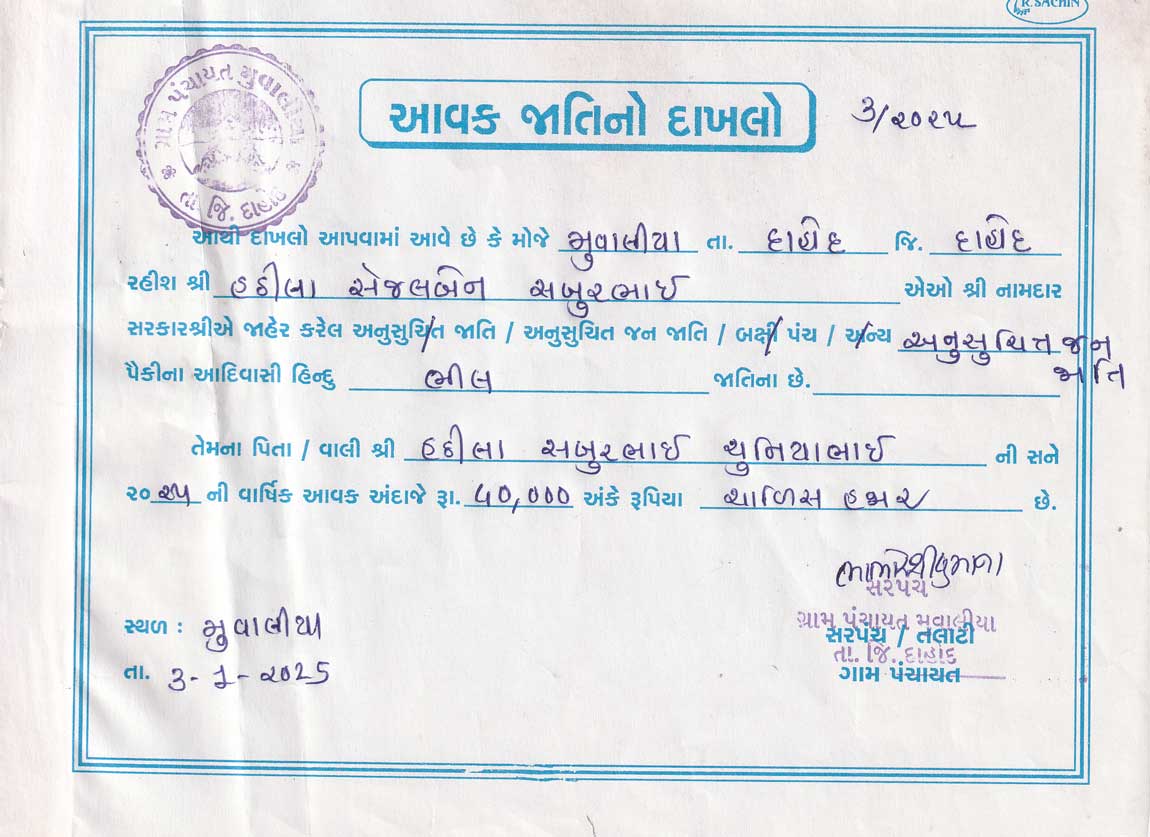 R.SACHIN
ગ્રામ પંચાયત મુવાલીયા
તા. જિ. દાહોદ
આવક જાતિનો દાખલો
૩/૨૦૨૫
આથી દાખલો આપવામાં આવે છે કે મોજે મુવાલીયા તા. દાહોદ જિ. દાહોદ
રહીશ શ્રી હઠીલા સેજલબેન સબુરભાઈ એઓ શ્રી નામદાર
સરકારશ્રીએ જાહેર કરેલ અનુસુચિત જાતિ / અનુસુચિત જન જાતિ / બક્ષી પંચ / અન્ય અનુસુચિત જન
જાતિ
પૈકીના આદિવાસી હિન્દુ ભીલ જાતિના છે.
તેમના પિતા / વાલી શ્રી હઠીલા સબુરભાઈ ચુનિયાભાઈ ની સને
૨૦૨૫ ની વાર્ષિક આવક અંદાજે રૂા. ૪૦,૦૦૦ અંકે રૂપિયા ચાળિસ હજાર છે.
સરપંચ
ગ્રામ પંચાયત મુવાલીયા
સ્થળ : મુવાલીયા
સરપંચ / તલાટી
તા. જિ. દાહોદ
તા. ૩-૧-૨૦25
ગામ પંચાયત